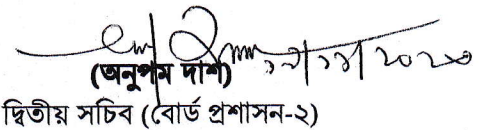 (অনুপম দাশ)
দ্বিতীয় সচিব (বোর্ড প্রশাসন-২)